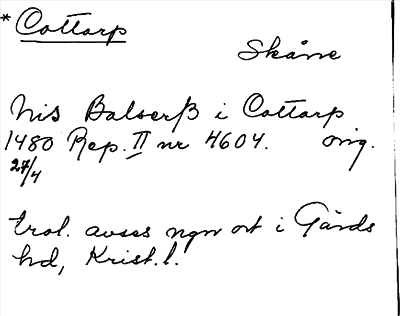 * Cottarp
Skåne
nis Balserß i Cottarp
1480 Rep. II nr 4604. orig.
27/4
trol. avses ngn ort i Gärds
hd, Krist. l.